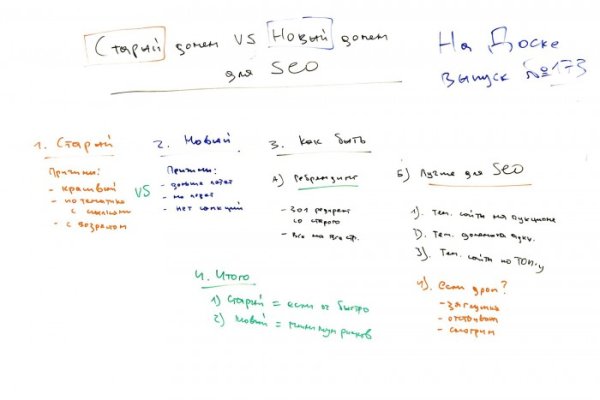 Старый домен VS Новый домен
для SEO
На Доске
выпуск №173
1. Старый
Причины:
- красивый
- по тематике
с ссылками
- с возрастом
VS
2. Новый
Причины:
- дольше
- не
- нет санкций
3. Как быть
А) Ребрендинг
- 301 редирект
со старого
- все на все стр.
Б) Лучше для SEO
1). Тем. сайты на аукционе
2). Тем. домены аукц.
3). Тем. сайты по ТОП-у
4). Если дроп?
- загрузка
- отстоялся
- смотрим
4. Итого
1) Старый = если ок быстро
2) Новый = минимум рисков